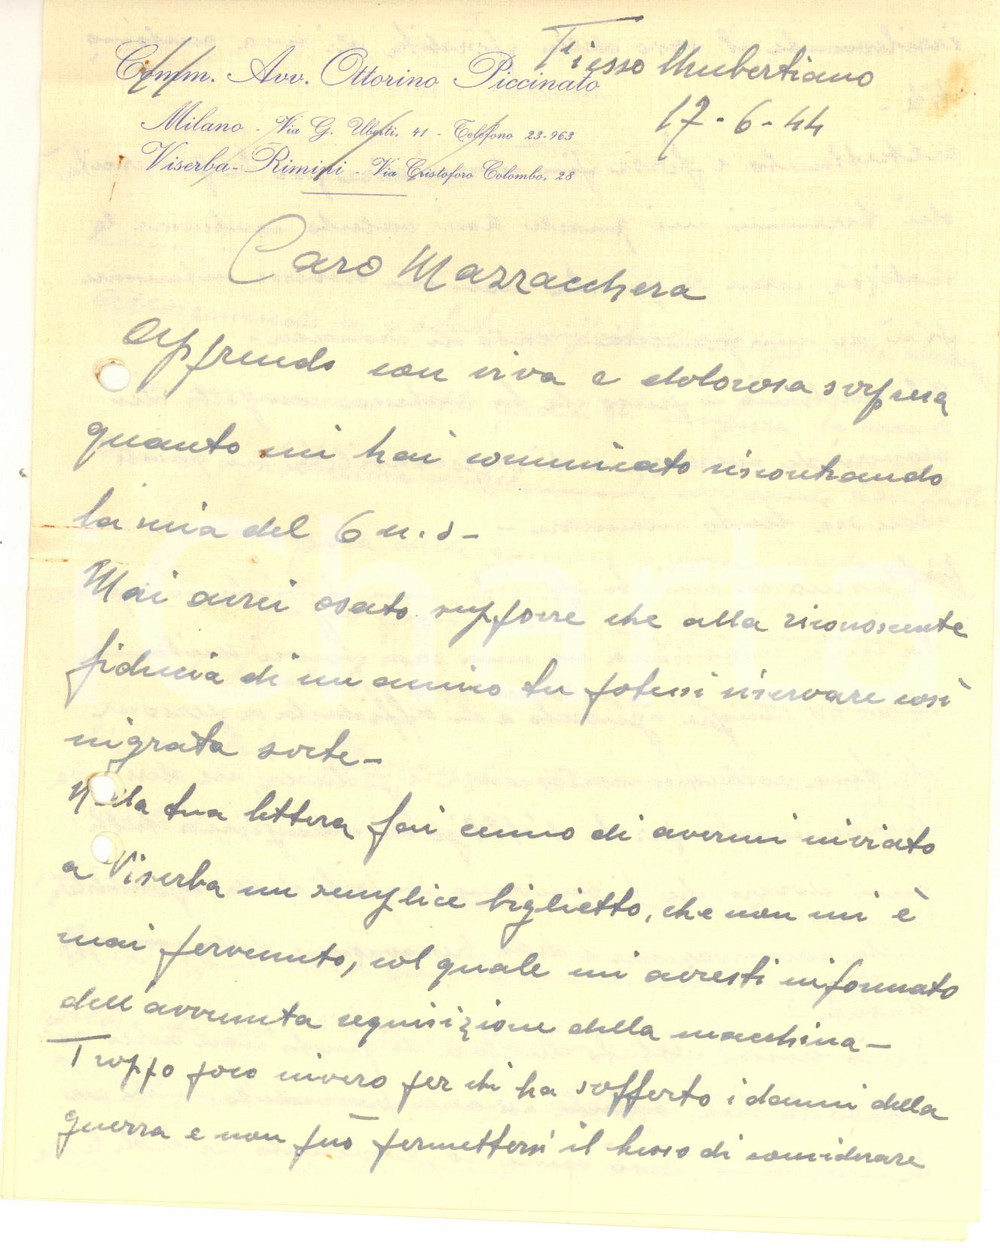 Comm. Avv. Ottorino Piccinato
Milano - Via G. Uberti, 41 - Telefono 23-963
Viserba-Rimini - Via Cristoforo Colombo, 28
Fiesso Umbertiano
17-6-44
Caro Mazzacchera
Apprendo con viva e dolorosa sorpresa
quanto mi hai comunicato riscontrando
la mia del 6 u.s-
Mai avrei osato supporre che alla riconoscente
fiducia di un amico tu potessi riservare così
ingrata sorte-
Nella tua lettera fai cenno di avermi inviato
a Viserba un semplice biglietto, che non mi è
mai pervenuto, col quale mi avresti informato
dell'avvenuta requisizione della macchina-
Troppo poco invero per chi ha sofferto i danni della
guerra e non può permettersi il lusso di considerare